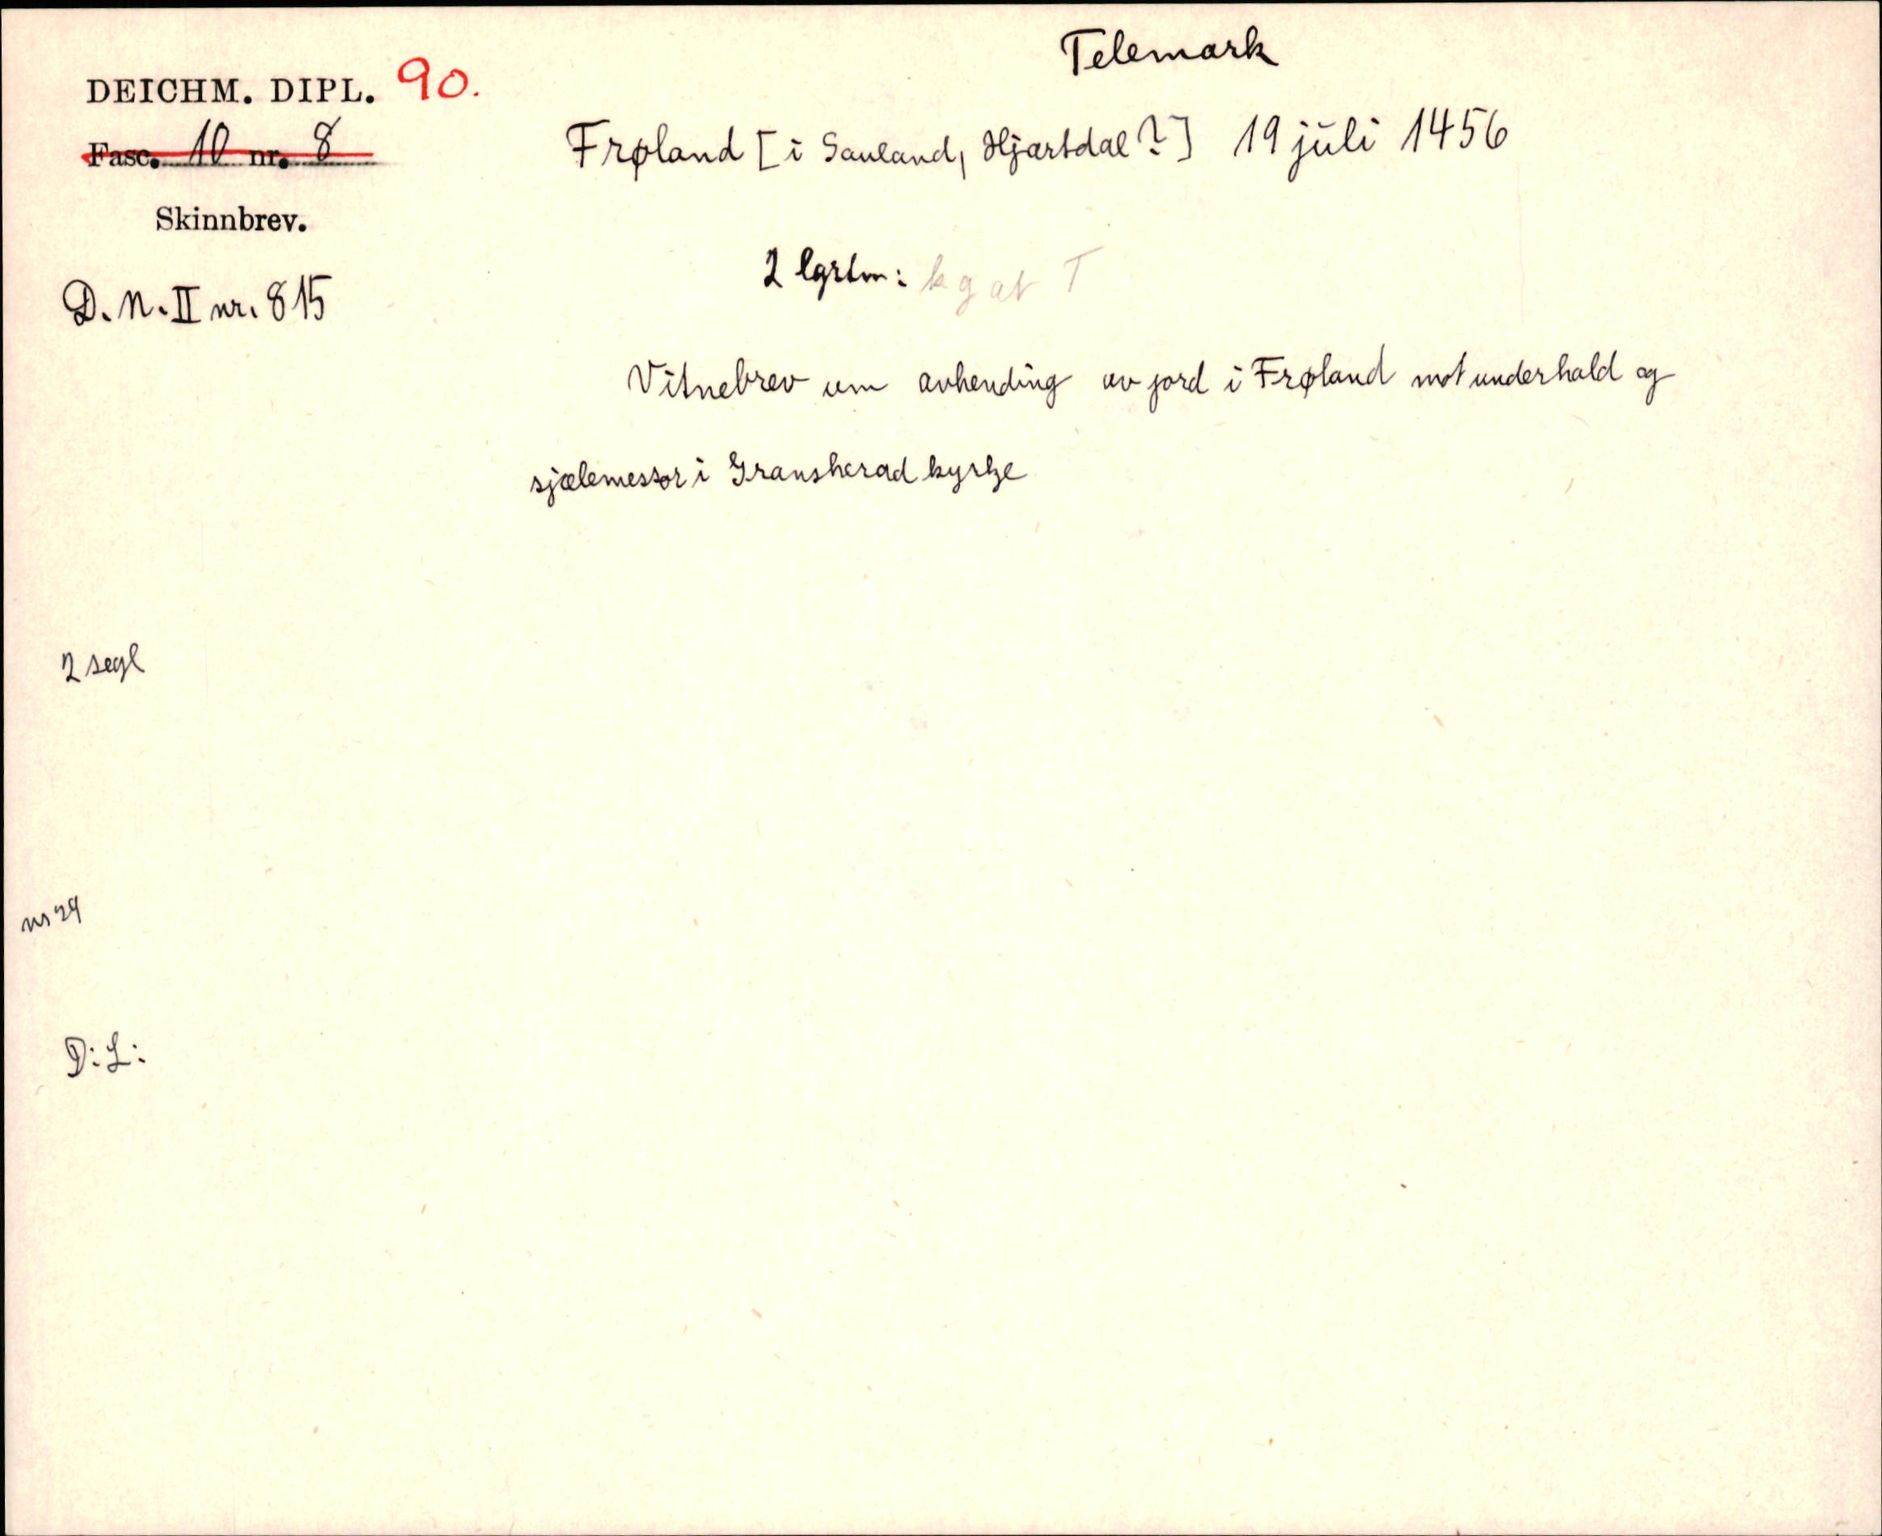 Telemark
DEICHM. DIPL. 90.
Fasc. 10 nr. 8
Frøland [i Sauland, Hjartdal?] 19 juli 1456
Skinnbrev.
2 lgrtm: k g at T
D. N. II nr. 815
Vitnebrev um avhending av jord i Frøland mot underhald og
sjælemessor i Gransherad kyrkje
2 segl
D: L: